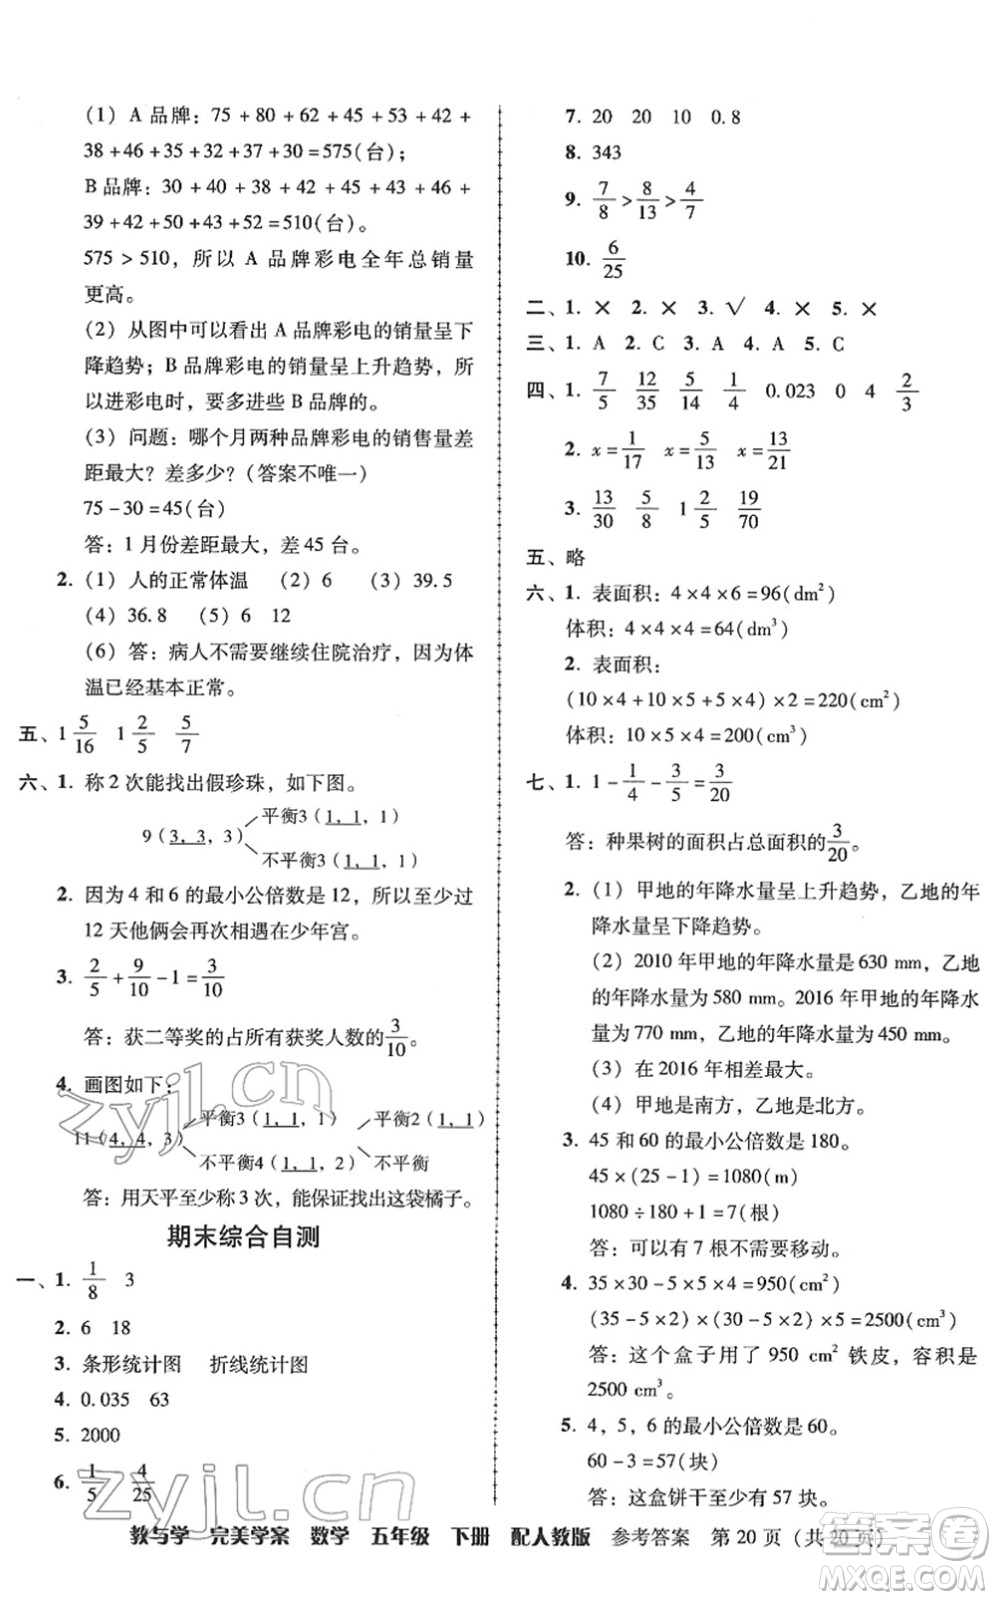 (1) A 品牌：75＋80＋62＋45＋53＋42＋
38＋46＋35＋32＋37＋30＝575(台)；
B 品牌：30＋40＋38＋42＋45＋43＋46＋
39＋42＋45＋50＋50＝510(台)。
575＞510，所以 A 品牌彩电全年总销量
更高。
(2) 从图中可以看出 A 品牌彩电的销量呈下
降趋势；B 品牌彩电的销量呈上升趋势，所
以进彩电时，要多进些 B 品牌的。
(3) 问题：哪个月两种品牌彩电的销售量差
距最大？差多少？(答案不唯一)
75－30＝45(台)
答：1 月份差距最大，差 45 台。
2. (1) 人的正常体温 (2) 6 (3) 39.5
(4) 36.8 (5) 6 12
(6) 答：病人不需要继续住院治疗，因为体
温已经基本正常。
五、1 5/16 1 2/5 5/7
六、1. 称 2 次能找出假珍珠，如下图。
平衡3（1，1，1）
9（3，3，3）
不平衡3（1，1，1）
2. 因为 4 和 6 的最小公倍数是 12，所以至少过
12 天他俩会再次相遇在少年宫。
3. 2/5＋9/10－1＝3/10
答：获二等奖的占所有获奖人数的3/10。
4. 画图如下：
平衡3（1，1，1） 平衡2（1，1）
11（4，4，3）
不平衡4（1，1，2） 不平衡
答：用天平至少称 3 次，能保证找出这袋橘子。
期末综合自测
一、1. 1/8 3
2. 6 18
3. 条形统计图 折线统计图
4. 0.035 63
5. 2000
6. 1/5 4/25
7. 20 20 10 0.8
8. 343
9. 7/8＞8/13＞4/7
10. 6/25
二、1. × 2. × 3. √ 4. × 5. ×
三、1. A 2. C 3. A 4. A 5. C
四、1. 7/5 12/35 5/14 1/4 0.023 0 4 2/3
2. x＝1/17 x＝5/13 x＝13/21
3. 13/30 5/8 1 2/5 19/70
五、略
六、1. 表面积：4×4×6＝96(dm²)
体积：4×4×4＝64(dm³)
2. 表面积：
(10×4＋10×5＋5×4)×2＝220(cm²)
体积：10×5×4＝200(cm³)
七、1. 1－1/4－3/5＝3/20
答：种果树的面积占总面积的3/20。
2. (1) 甲地的年降水量呈上升趋势，乙地的年
降水量呈下降趋势。
(2) 2010 年甲地的年降水量是 630 mm，乙地
为 580 mm。2016 年甲地的年降水
量为 770 mm，乙地的年降水量为 450 mm。
(3) 在 2016 年相差最大。
(4) 甲地是南方，乙地是北方。
3. 45 和 60 的最小公倍数是 180。
45×(25－1)＝1080(m)
1080÷180＋1＝7(根)
答：可以有 7 根不需要移动。
4. 35×30－5×5×4＝950(cm²)
(35－5×2)×(30－5×2)×5＝2500(cm³)
答：这个盒子用了 950 cm² 铁皮，容积是
2500 cm³。
5. 4，5，6 的最小公倍数是 60。
60－3＝57(块)
答：这盒饼干至少有 57 块。
教与学 完美学案 数学 五年级 下册 配人教版 参考答案 第 20 页（共 20 页）
zyjl.cn
zyjl.cn
答案圈
MXQE.COM